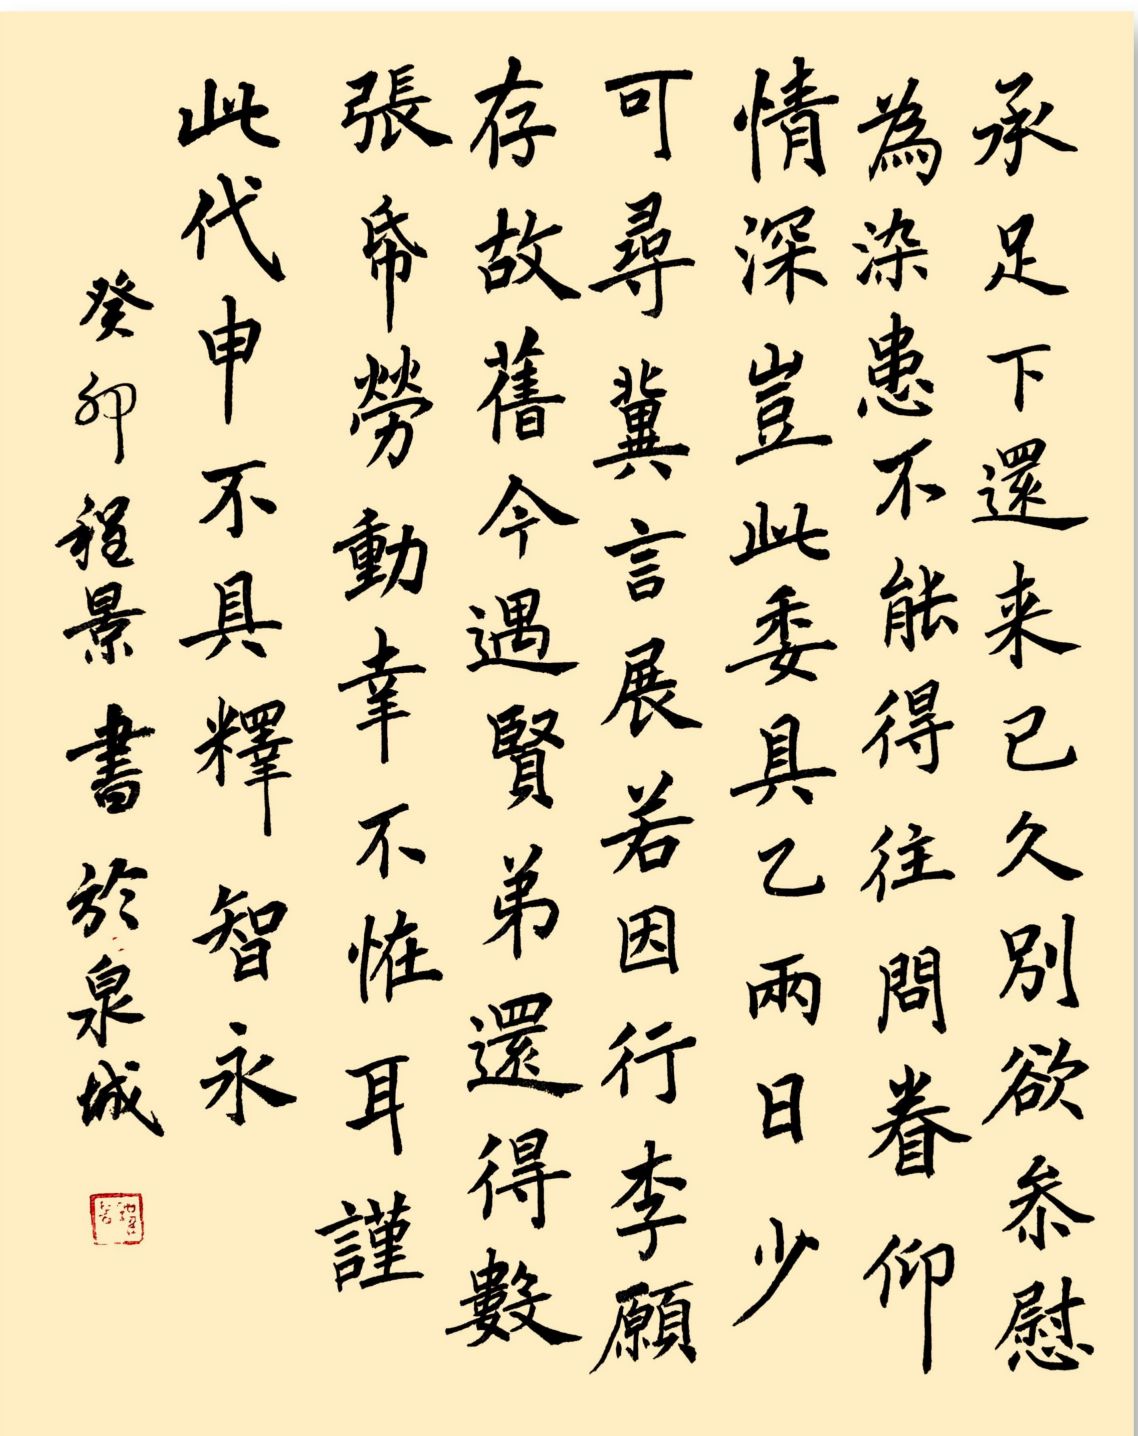 承足下還来已久別欲叅慰
為染患不能得往問眷仰
情深豈此委具乙兩日少
可尋冀言展若因行李願
存故舊今遇賢弟還得數
張帋勞動幸不恠耳謹
此代申不具釋智永
癸卯程景書於泉城